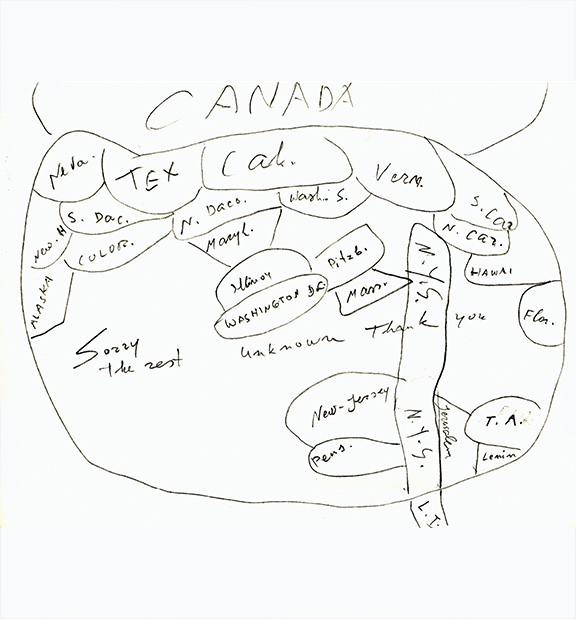 CANADA
Neva.
TEX
Cal.
Verm.
S. Car
New. H
S. Dac.
N. Daco.
Wash. S.
N. Car.
COLOR.
Maryl.
HAWAI
ALASKA
Illinoy
Pitzb.
N.Y.G.
WASHINGTON D.C.
Mass.
Flor.
Sorry
the rest
unknown Thank you
New-Jersey
N.Y.G.
Jerusalem
T.A.
Pens.
Lenin
L.I.